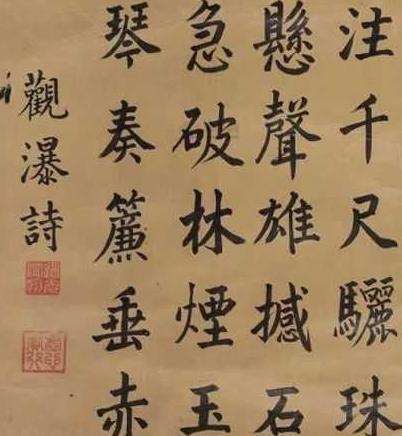 注千尺驪珠
懸聲雄撼石
急破林煙玉
琴奏簾垂赤
觀瀑詩